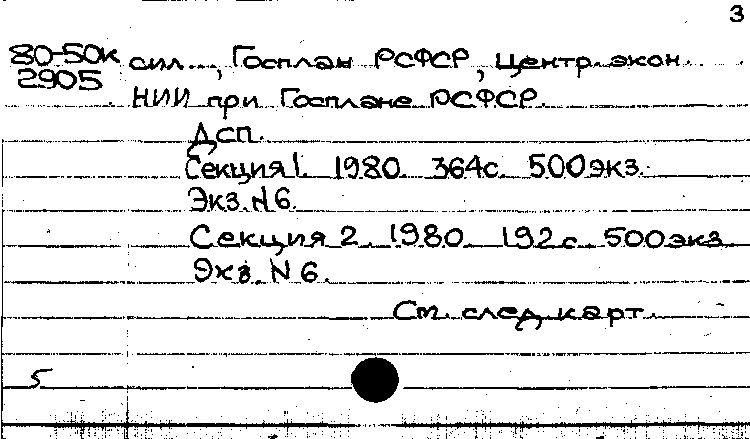 3
80-50к сил..., Госплан РСФСР, Центр. экон.
2905 НИИ при Госплане РСФСР.
Дсп.
Секция 1. 1980. 364с. 500экз.
Экз. N6.
Секция 2. 1980. 192с. 500экз.
Экз. N6.
См. след. карт.
5